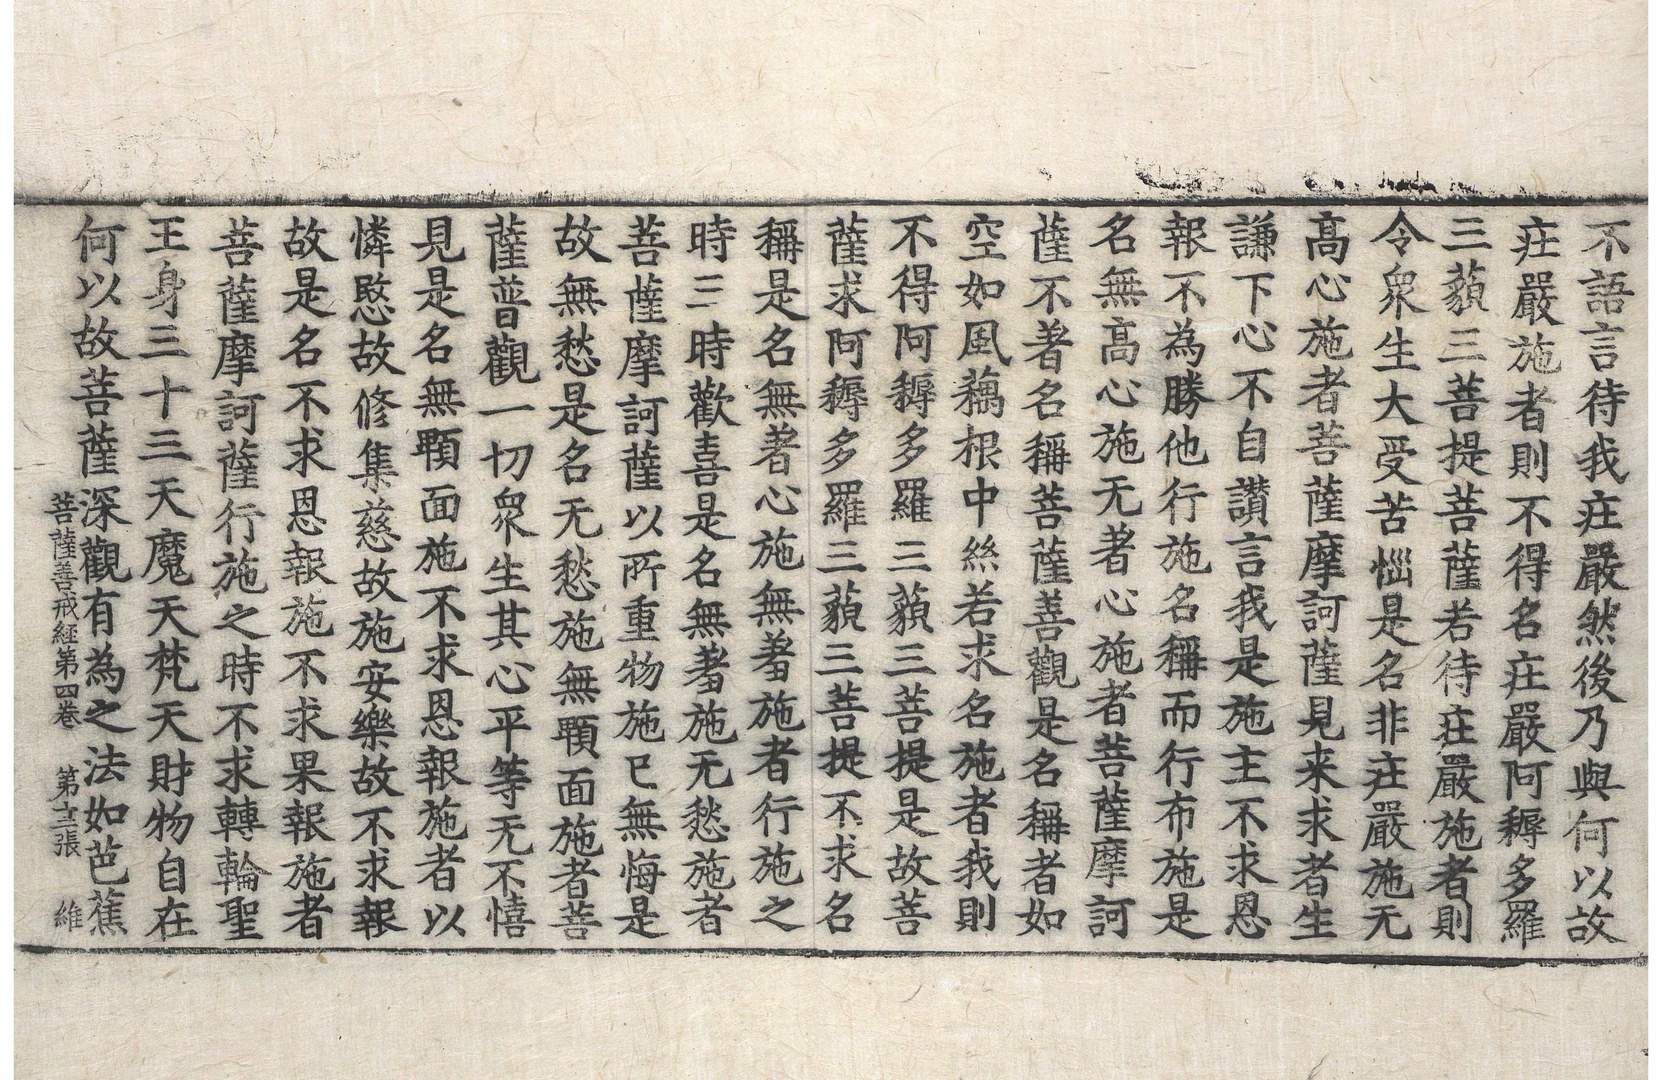 不語言待我庄嚴然後乃與何以故
庄嚴施者則不得名庄嚴阿耨多羅
三藐三菩提菩薩若待庄嚴施者則
令衆生大受苦惱是名非庄嚴施无
髙心施者菩薩摩訶薩見来求者生
謙下心不自讃言我是施主不求恩
報不為勝他行施名稱而行布施是
名無髙心施无著心施者菩薩摩訶
薩不著名稱菩薩善觀是名稱者如
空如風藕根中絲若求名施者我則
不得阿耨多羅三藐三菩提是故菩
薩求阿耨多羅三藐三菩提不求名
稱是名無著心施無著施者行施之
時三時歡喜是名無著施无愁施者
菩薩摩訶薩以所重物施已無悔是
故無愁是名无愁施無顋面施者菩
薩普觀一切衆生其心平等无不憘
見是名無顋面施不求恩報施者以
憐愍故修集慈故施安樂故不求報
故是名不求恩報施不求果報施者
菩薩摩訶薩行施之時不求轉輪聖
王身三十三天魔天梵天財物自在
何以故菩薩深觀有為之法如芭蕉
菩薩善戒經第四卷 第十三張 維